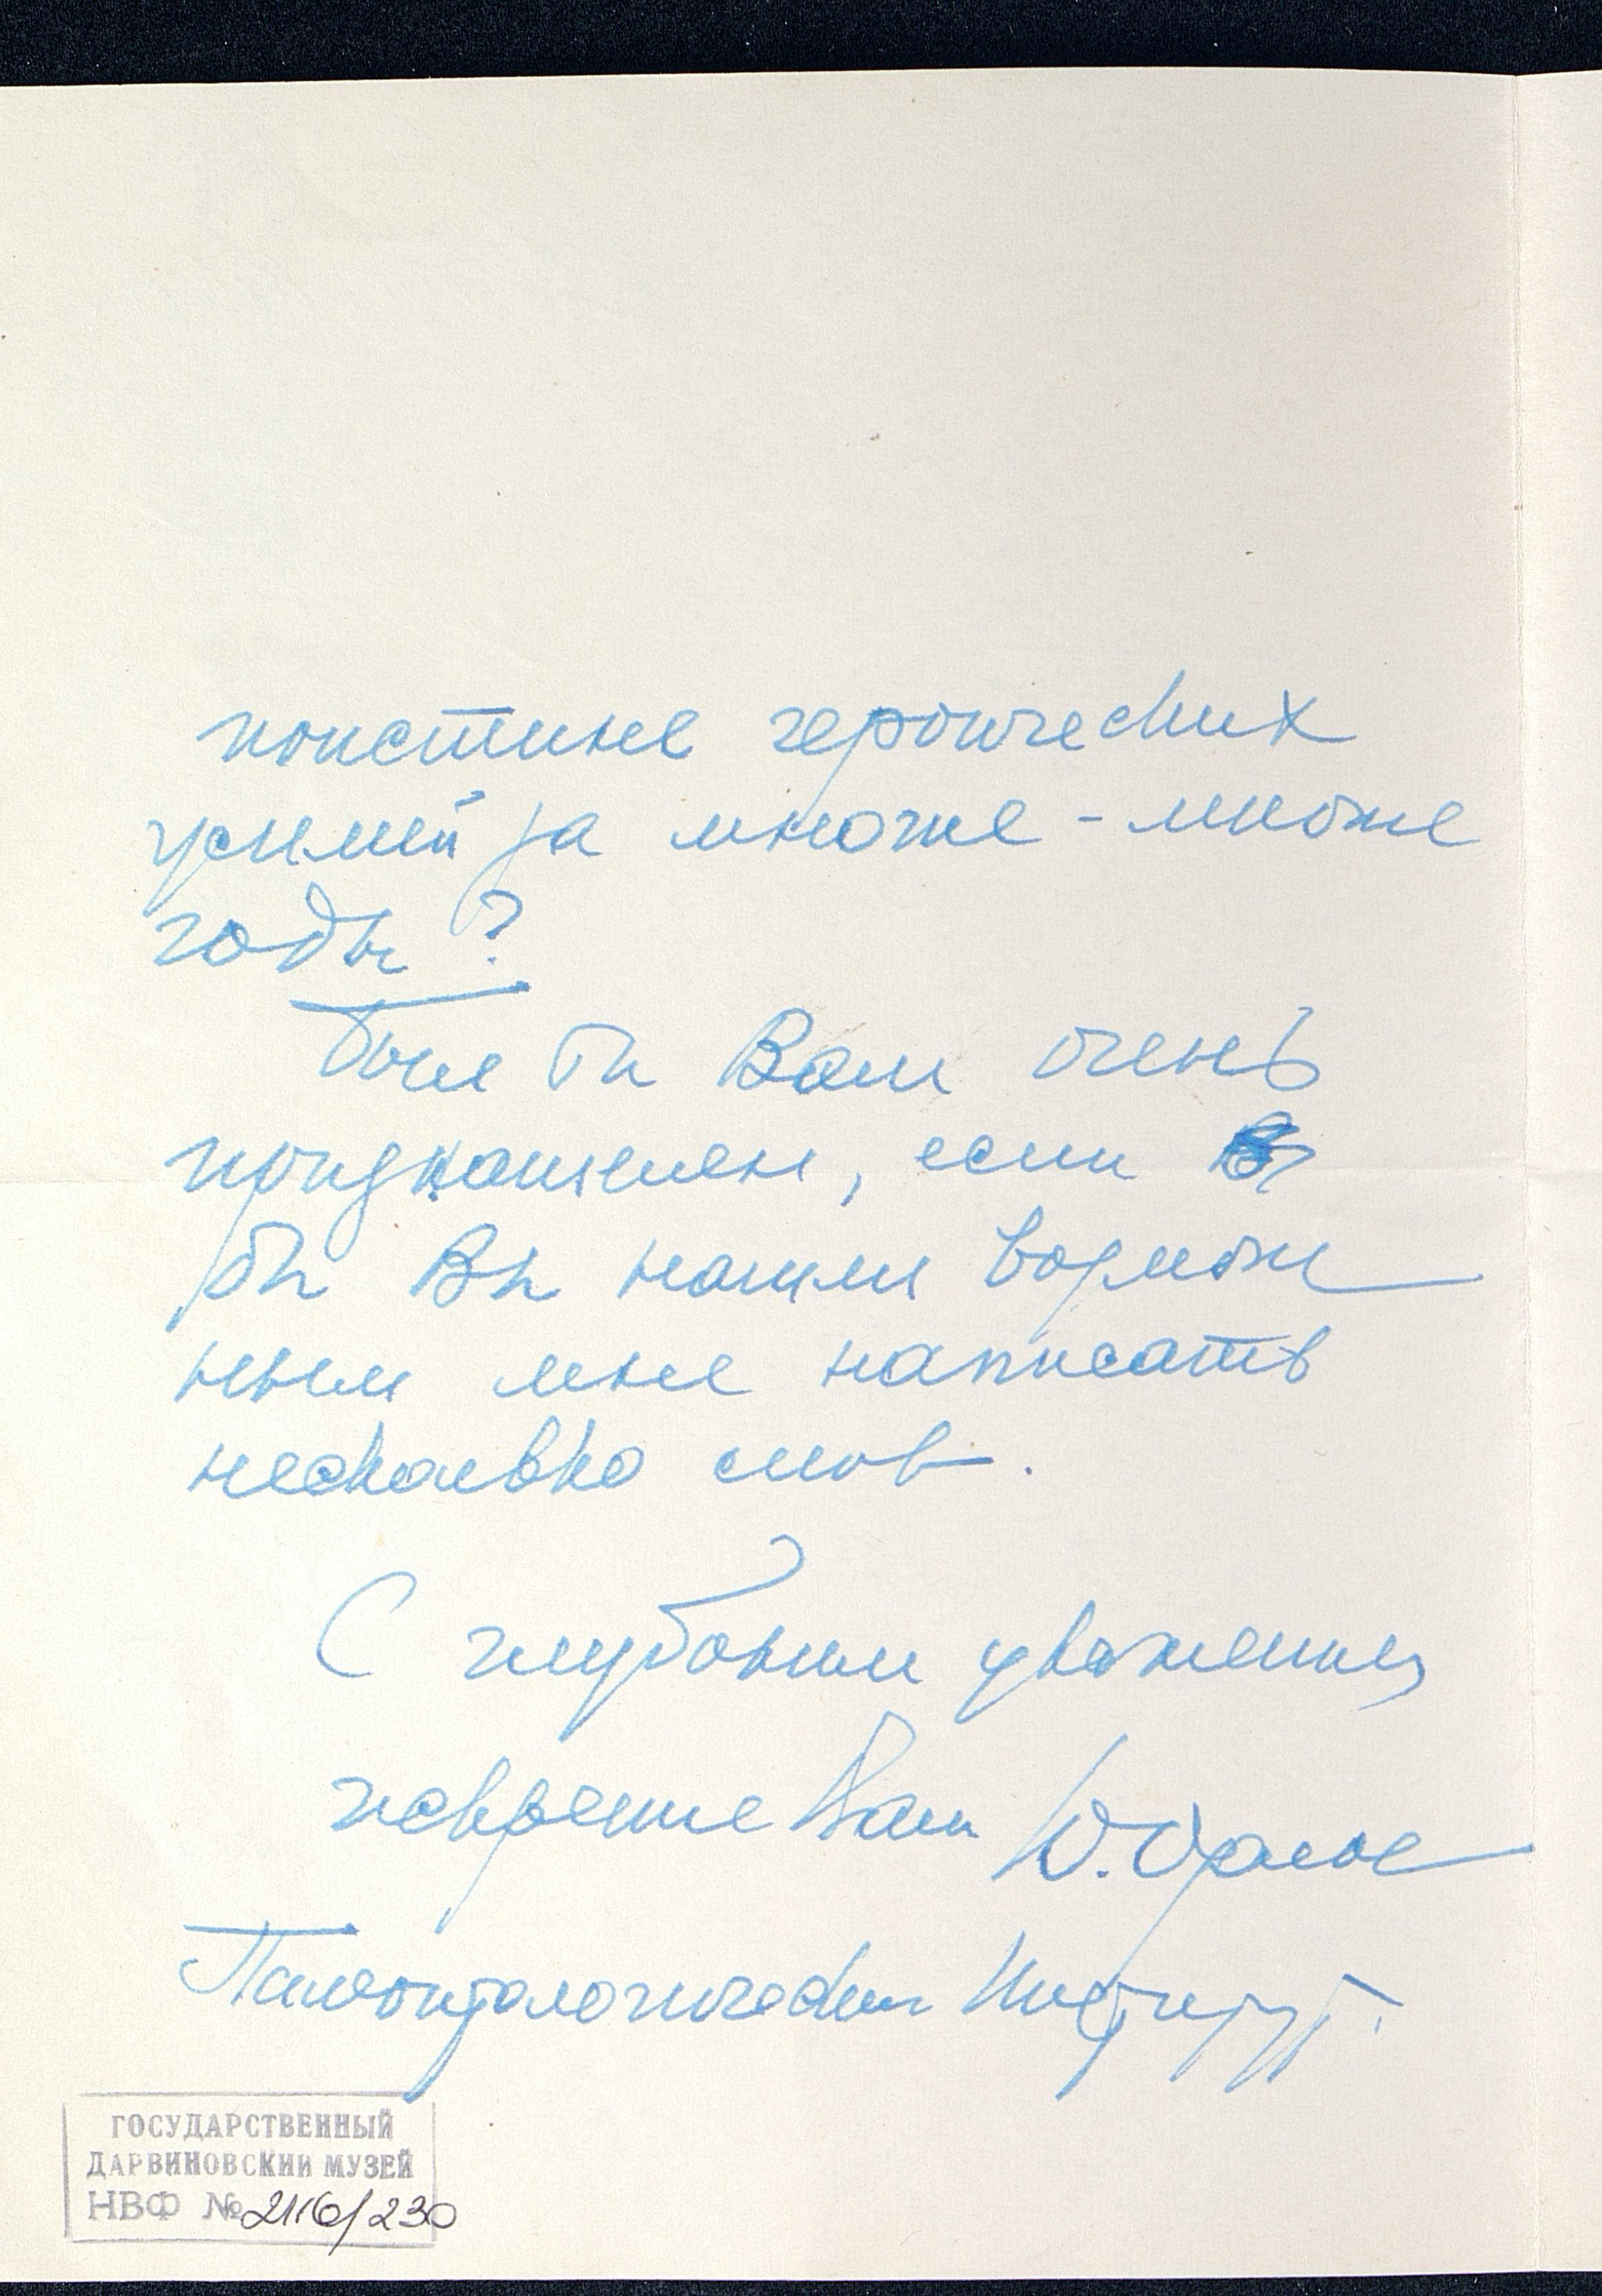 поистине героических
усилий за многие - многие
годы?
Был бы Вам очень
признателен, если
бы Вы нашли возмож
ным мне написать
несколько слов.
С глубоким уважением
искренне Ваш Ю. Орлов
Палеонтологический Институт.
ГОСУДАРСТВЕННЫЙ
ДАРВИНОВСКИЙ МУЗЕЙ
НВФ № 2116/230